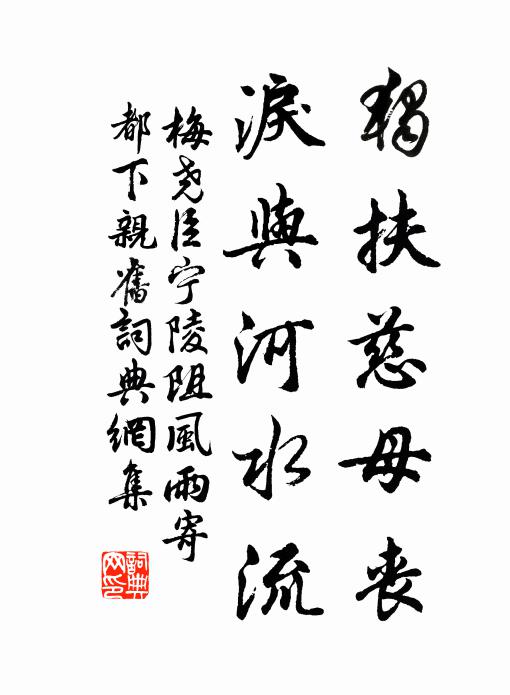 獨扶慈母喪
淚與河水流
梅尧臣宁陵阻風雨寄
都下親舊詞典網集
詞典
网印